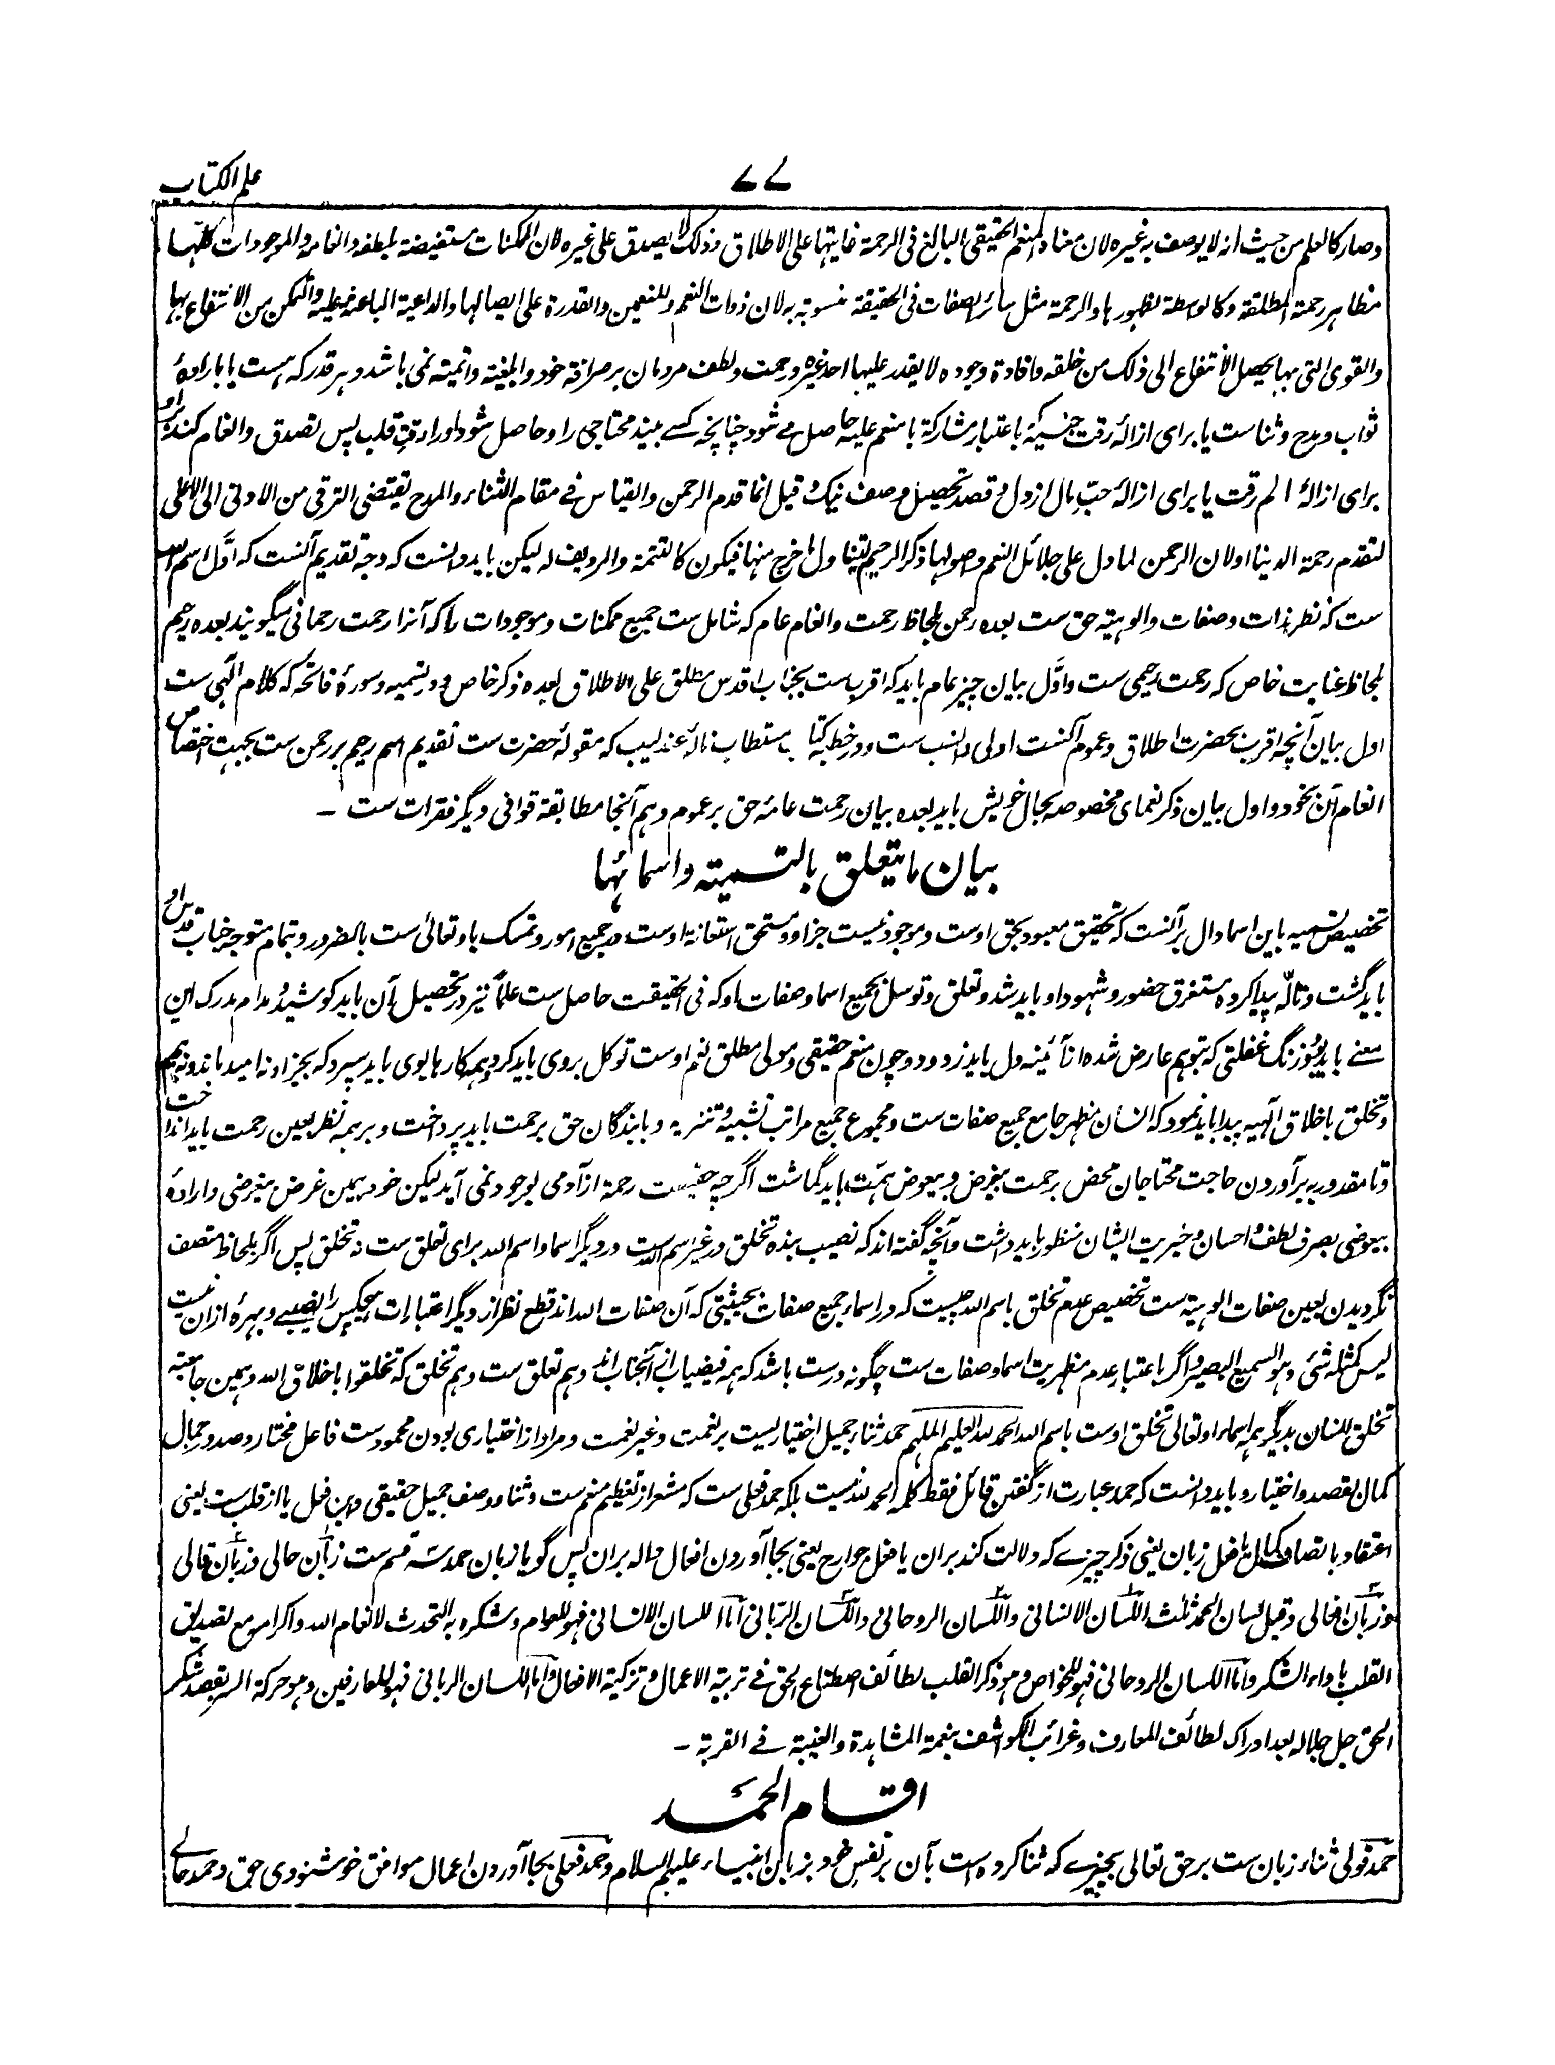 علم الکتاب
۷۷
وصار کالعلم من حیث انه لا یوصف به غیره لان معناه المنعم الحقیقی البالغ فی الرحمة غایتها علی الاطلاق وذلک لا یصدق علی غیره لان الممکنات مستفیضة بلطفه وانعامه والموجودات کلها
مظاهر رحمة المطلقة وکالواسطة لظهورها والرحمة مثل سائر الصفات فی الحقیقة منسوبة به لان ذوات النعم وللنعمین والقدرة علی ایصالها والداعیة الباعثة علیه والتمکن من الانتفاع بها
والقوی التی بها یحصل الانتفاع الی ذلک من خلقه وافادة وجوده لا یقدر علیها احد غیره ورحمت ولطف مردمان بر صرافة خود وابلغیته واتمیته نمی باشد و هر قدر که هست یا باراده
ثواب ومدح وثناست یا برای ازاله رقت جنسیة باعتبار مشارکة با منعم علیه حاصل می شود چنانچه کسے بیند محتاجی را و حاصل شود او را رقت قلب پس تصدق وانعام کند او را
برای ازالهٔ الم رقت یا برای ازالهٔ حبّ مال از دل و قصد تحصیل وصف نیک وقیل انما قدم الرحمن والقیاس فے مقام الثناء والمدح یقتضی الترقی من الادنی الی الاعلی
لتقدم رحمة الدنیا اولان الرحمن لما دل علی جلائل النعم واصولها ذکر الرحیم لیتناول ما خرج منها فیکون کالتتمة والردیف له لیکن باید دانست که وجه تقدیم آنست که اوَّل اسم الله
ست که نظر بذات وصفات والوهیة حق ست بعده رحمن بلحاظ رحمت وانعام عام که شامل ست جمیع ممکنات وموجودات را که آنرا رحمت رحمانی میگویند بعده رحیم
بلحاظ عنایت خاص که رحمت رحیمی ست واوَّل بیان چیز عام باید که اقرب ست بجناب اقدس مطلق علی الاطلاق بعده ذکر خاص ودر تسمیه وسورهٔ فاتحه که کلام الٓهی ست
اول بیان آنچه اقرب بحضرت اطلاق وعموم آنست اولی وانسب ست ودر خطبه کتاب مستطاب نالهٔ عندلیب که مقولهٔ حضرت ست تقدیم اسم رحیم بر رحمن ست بجهت اختصاص
انعام آن بخود واول بیان وذکر نعمای مخصوصه بحال خویش باید بعده بیان رحمت عامهٔ حق بر عموم وهم آنجا مطابقة قوافی دیگر فقرات ست ـ
بیان ما یتعلق بالتسمیته واسمائها
تخصیص تسمیه باین اسما دال بر آنست که تحقیق معبود بحق اوست وموجود نیست جز او ومستحق استعانة اوست در جمیع امور وتمسک باو تعالی ست بالضرور وبتمام متوجه جناب قدس او
باید گشت وتالّه پیدا کرده مستغرق حضور وشهود او باید شد وتعلق وتوسل بجمیع اسما وصفات او که فی الحقیقت حاصل ست علماً نیز در تحصیل آن باید کوشید ومدام مدرک این
معنے باید بود زنگ غفلتی که بتوهم عارض شده از آئینه دل باید زدود وچون منعم حقیقی ومولی مطلق نعم اوست توکل بروی باید کرد وهمه کارها بوی باید سپرد که بجز او نه امید باند ونه بیم
وتخلق باخلاق الٓهیه پیدا باید نمود که انسان مظهر جامع جمیع صفات ست ومجموع جمیع مراتب تشبیه وتنزیه وبا بندگان حق برحمت باید پرداخت وبر همه نظر بعین رحمت باید انداخت
وتا مقدور به برآوردن حاجت محتاجان محض برحمت بیغرض وبیعوض همّت باید گماشت اگر چه حقیقت رحمة از آدمی بوجود نمی آید لیکن خود بهمین غرض بیغرضی وارادهٔ
بیعوضی بصرف لطف واحسان وخیریت ایشان منظور باید داشت وآنچه گفته اند که نصیب بنده تخلق در غیر اسم الله ست در دیگر اسما واسم الله برای تعلق ست نه تخلق پس اگر بلحاظ متصف
نگردیدن بعین صفات الوهیة ست تخصیص عدم تخلق باسم الله چیست که در اسماء جمیع صفات بحیثیتی که آن صفات الله اند قطع نظر از دیگر اعتبارات هیچکس را نصیبے وبهرهٔ ازان نیست
لیس کمثله شئ وهو السمیع البصیر واگر باعتبار عدم مظهریت اسما وصفات ست چگونه درست باشد که همه فیضیاب ازان آنجناب اند وهم تعلق ست وهم تخلق که تخلقوا باخلاق الله وبهمین جامعیته
تخلق انسان بدیگر همه اسماء او تعالی تخلق اوست باسم الله الحمد لله العلیم الملهم حمد ثناء جمیل اختیاریست بر نعمت وغیر نعمت ومراد از اختیاری بودن محمودست فاعل مختار وصدور جمال
کمال بقصد واختیار وباید دانست که حمد عبارت از گفتن قائل فقط کلمه الحمد لله نیست بلکه حمد فعلی ست که مشعر از تعظیم منعم ست وثنا ووصف جمیل حقیقی واین فعل یا از قلب ست یعنی
اعتقاد باتصاف کمال یا فعل زبان یعنی ذکر چیزے که دلالت کند بران یا فعل جوارح یعنی بجا آوردن افعال داله بران پس گویا زبان حمد سه قسم ست زبان حالی وزبان قالی
وزبان افعالی وقیل لسان الحمد ثلث اللسان الانسانی واللسان الروحانی واللسان الرّبانی اما اللسان الانسانی فهو للعوام وشکره به التحدث لانعام الله واکرامه مع تصدیق
القلب باداء الشکر واما اللسان الروحانی فهو للخواص وهو ذکر القلب لطائف اصطناع الحق فے تربیة الاعمال وتزکیة الافعال واما اللسان الربانی فهو للعارفین وهو حرکة السر بقصد شکر
الحق جل جلاله بعد ادراک لطائف المعارف وغرائب الکواشف بنعمة المشاهدة والغیبة فے القربة ـ
اقسام الحمد
حمد قولی ثناء زبان ست بر حق تعالی بچیزے که ثنا کرده است بآن بر نفس خود بزبان انبیاء علیهم السلام وحمد فعلی بجا آوردن اعمال موافق خوشنودی حق وحمد حالے